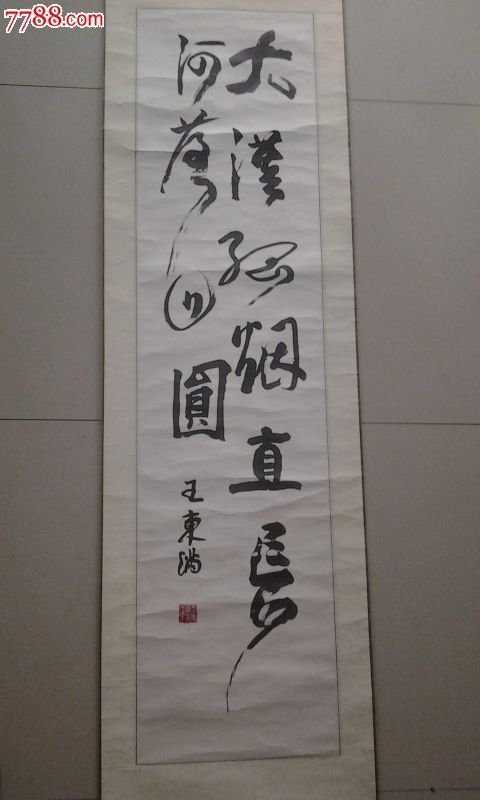 7788.com
大漠孤烟直長
河落日圓
王東満